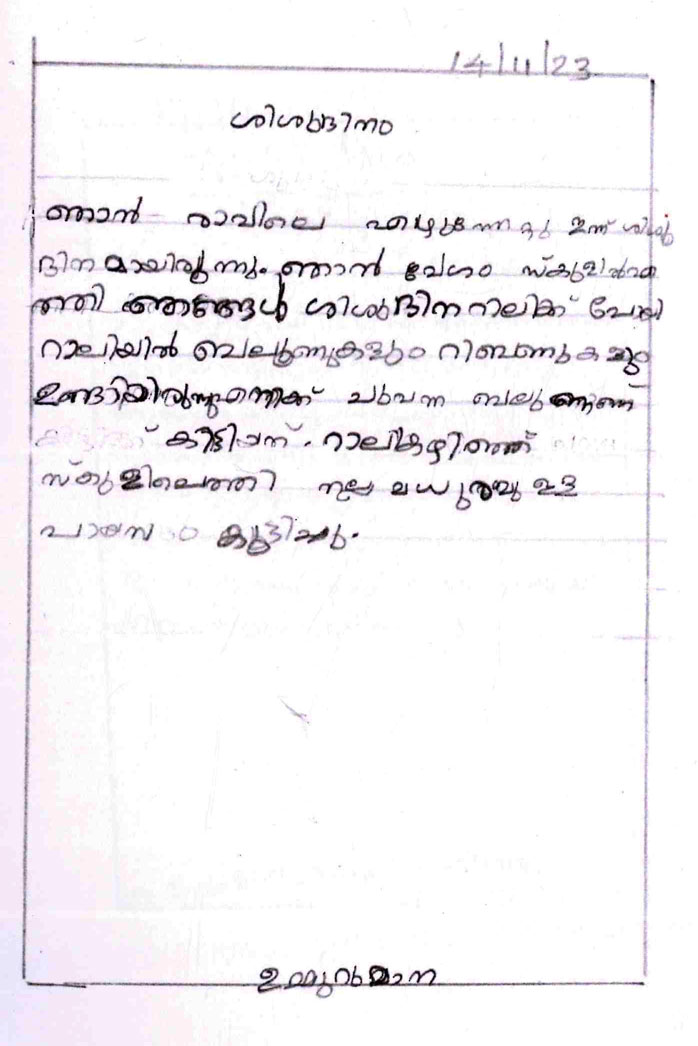 14/11/23
ശിശുദിനം
ഞാൻ രാവിലെ എഴുന്നേറ്റു ഇന്ന് ശിശു
ദിനമായിരുന്നു. ഞാൻ വേഗം സ്കുളിലെ
ത്തി ഞങ്ങൾ ശിശുദിന റാലിക്ക് പോയി
റാലിയിൽ ബെലൂണുകളും റിബണുകളും
ഉണ്ടായിരുന്നു എനിക്ക് ചുവന്ന ബലൂണാണ്
കിട്ടിയന്. റാലികഴിഞ്ഞ്
സ്കുളിലെത്തി നല്ല മധുരമു ഉള
പായസം കുടിച്ചു.
ഉമ്മുറുമാന